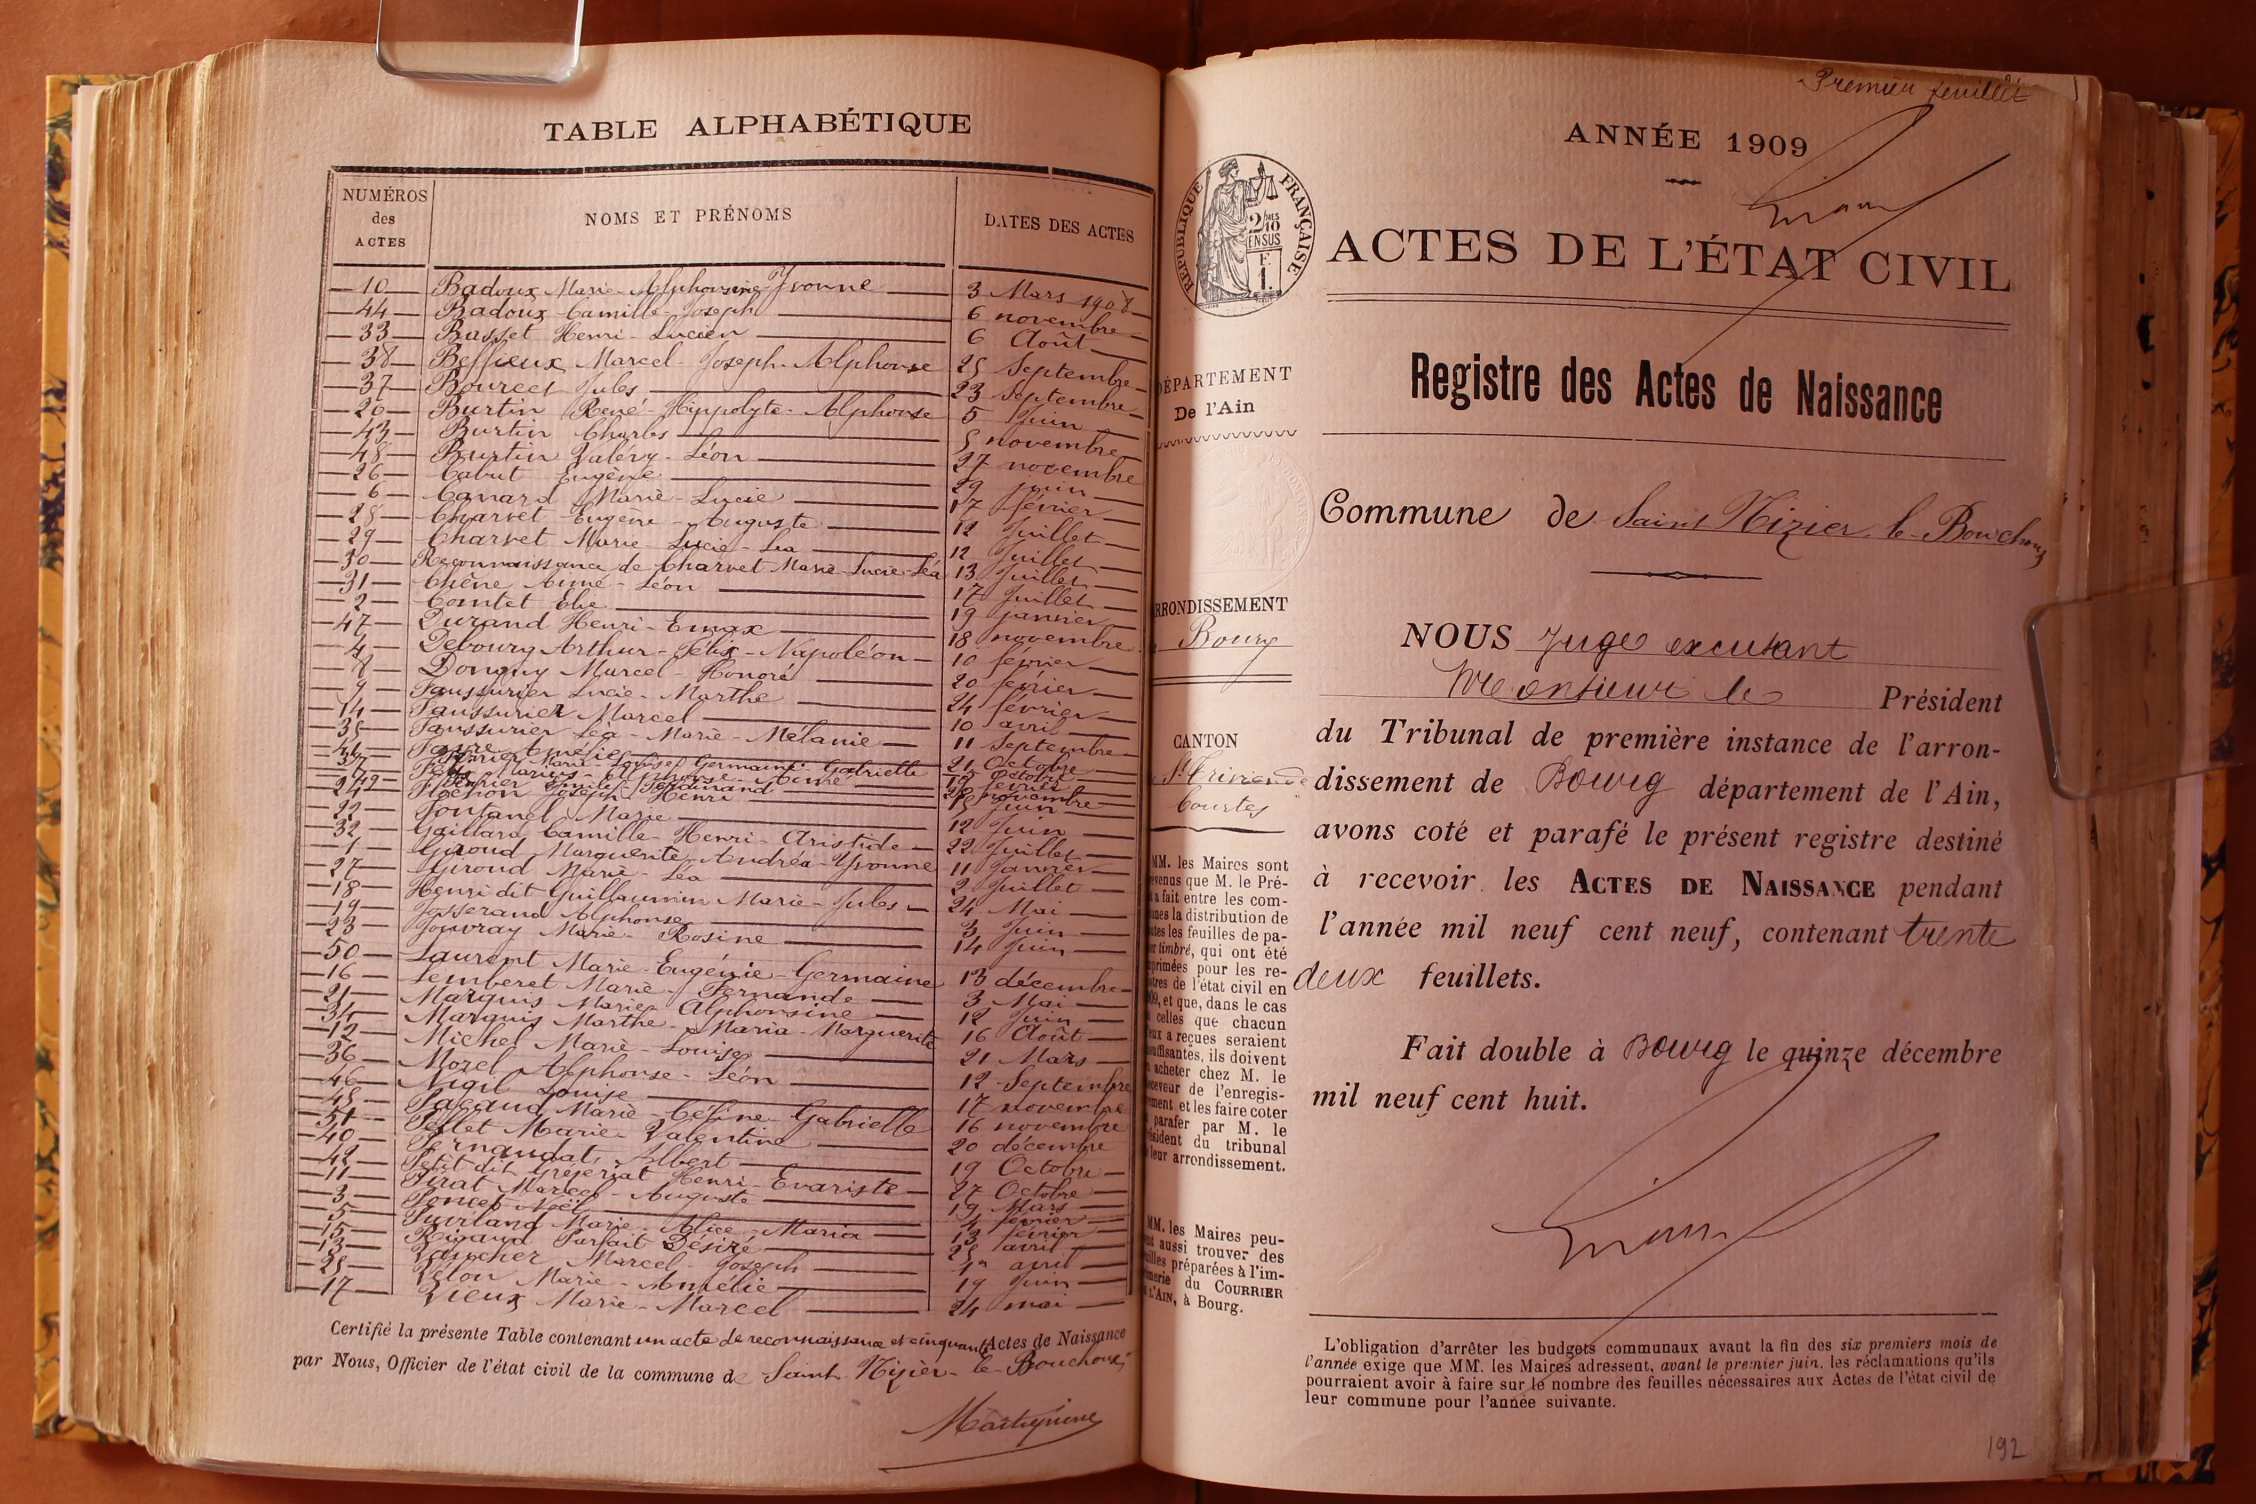 TABLE ALPHABÉTIQUE
NUMÉROS des ACTES
NOMS ET PRÉNOMS
DATES DES ACTES
10 Badoux Marie Alphonsine Yvonne 3 Mars 1908
44 Badoux Camille Joseph 6 novembre
33 Basset Henri Lucien 6 Août
38 Beffieux Marcel Joseph Alphonse 25 Septembre
37 Bourcet Jules 23 Septembre
20 Burtin René Hippolyte Alphonse 5 Juin
43 Burtin Charles 5 novembre
48 Burtin Valéry Léon 27 novembre
26 Cabut Eugène 29 juin
6 Canard Marie Lucie 17 février
28 Charvet Eugène Auguste 12 Juillet
29 Charvet Marie Lucie Lea 12 Juillet
30 Reconnaissance de Charvet Marie Lucie Léa 13 Juillet
31 Chêne Aimé Léon 17 Juillet
2 Comtet Elie 19 janvier
47 Durand Henri Emax 18 novembre
4 Debourg Arthur Félix Napoléon 10 février
8 Donguy Marcel Honoré 20 février
9 Faussurier Lucie Marthe 24 février
14 Faussurier Marcel 10 avril
35 Faussurier Léa Marie Mélanie 11 Septembre
Favre Amélie 21 Octobre
Marie Louise Germaine Gabrielle
Marius Alphonse Aimé février
49 Ferrier Emile Ferdinand novembre
24 Flochon Joseph Henri Juin
22 Fontanel Marie 12 Juin
32 Gaillard Camille Henri Aristide 22 Juillet
1 Giroud Marguerite Andréa Yvonne 11 Janvier
27 Giroud Marie Léa 2 Juillet
18 Henri dit Guillaumin Marie Jules 24 Mai
19 Josserand Alphonse 3 Juin
23 Jouvray Marie Rosine 14 Juin
50 Laurent Marie Eugénie Germaine 13 décembre
16 Lemberet Marie Fernande 3 Mai
21 Marquis Marie Alphonsine 12 Juin
34 Marquis Marthe Maria Marguerite 16 Août
12 Michel Marie Louise 21 Mars
36 Morel Alphonse Léon 12 Septembre
46 Nigil Louise 17 novembre
45 Pacaud Marie Céline Gabrielle 16 novembre
51 Pellet Marie Valentine 20 décembre
40 Pernaudat Albert 19 Octobre
42 Petit dit Grejeriat Henri Evariste 27 Octobre
11 Pirat Marcel Auguste 19 Mars
3 Poncet Noël 4 février
5 Puvilland Marie Alice Maria 13 février
15 Rigaud Parfait Désiré 25 avril
13 Vaucher Marcel Joseph 1er avril
25 Velon Marie Amélie 19 Juin
17 Vieux Marie Marcel 24 mai
Certifié la présente Table contenant un acte de reconnaissance et cinquante Actes de Naissance
par Nous, Officier de l'état civil de la commune de Saint Nizier le Bouchoux
Premier feuillet
ANNÉE 1909
RÉPUBLIQUE FRANÇAISE
2/10MES
EN SUS
F.
1.
ACTES DE L'ÉTAT CIVIL
DÉPARTEMENT
De l'Ain
Registre des Actes de Naissance
Commune de Saint Nizier le Bouchoux
ARRONDISSEMENT
Bourg
CANTON
St Trivier de
Courtes
NOUS Juge excusant
Monsieur le Président
du Tribunal de première instance de l'arron-
dissement de Bourg département de l'Ain,
avons coté et parafé le présent registre destiné
à recevoir les ACTES DE NAISSANCE pendant
l'année mil neuf cent neuf, contenant trente
deux feuillets.
Fait double à Bourg le quinze décembre
mil neuf cent huit.
MM. les Maires sont
que M. le Pré-
a fait entre les com-
la distribution de
les feuilles de pa-
timbré, qui ont été
pour les re-
de l'état civil en
et que, dans le cas
celles que chacun
a reçues seraient
ils doivent
acheter chez M. le
de l'enregis-
et les faire coter
parafer par M. le
du tribunal
leur arrondissement.
MM. les Maires peu-
aussi trouver des
préparées à l'im-
du COURRIER
L'AIN, à Bourg.
L'obligation d'arrêter les budgets communaux avant la fin des six premiers mois de
l'année exige que MM. les Maires adressent, avant le premier juin, les réclamations qu'ils
pourraient avoir à faire sur le nombre des feuilles nécessaires aux Actes de l'état civil de
leur commune pour l'année suivante.
192